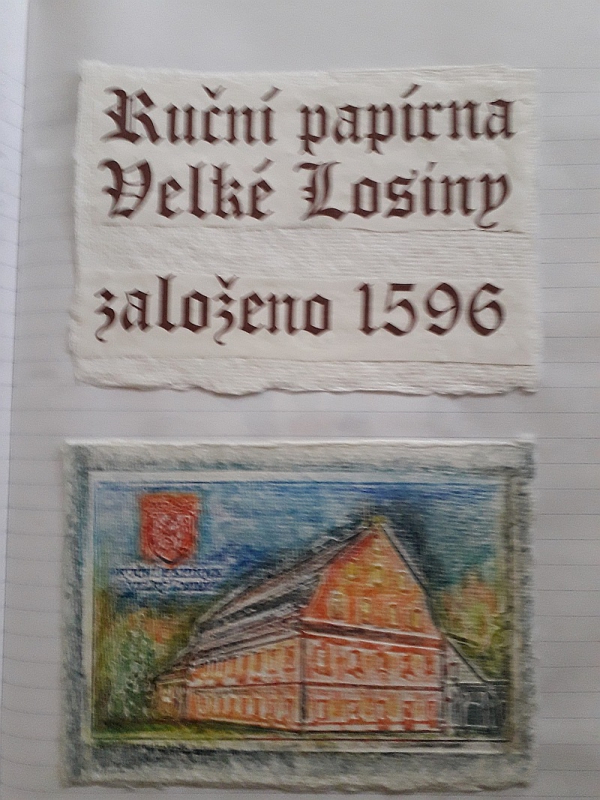 Ruční papírna
Velké Losiny
založeno 1596